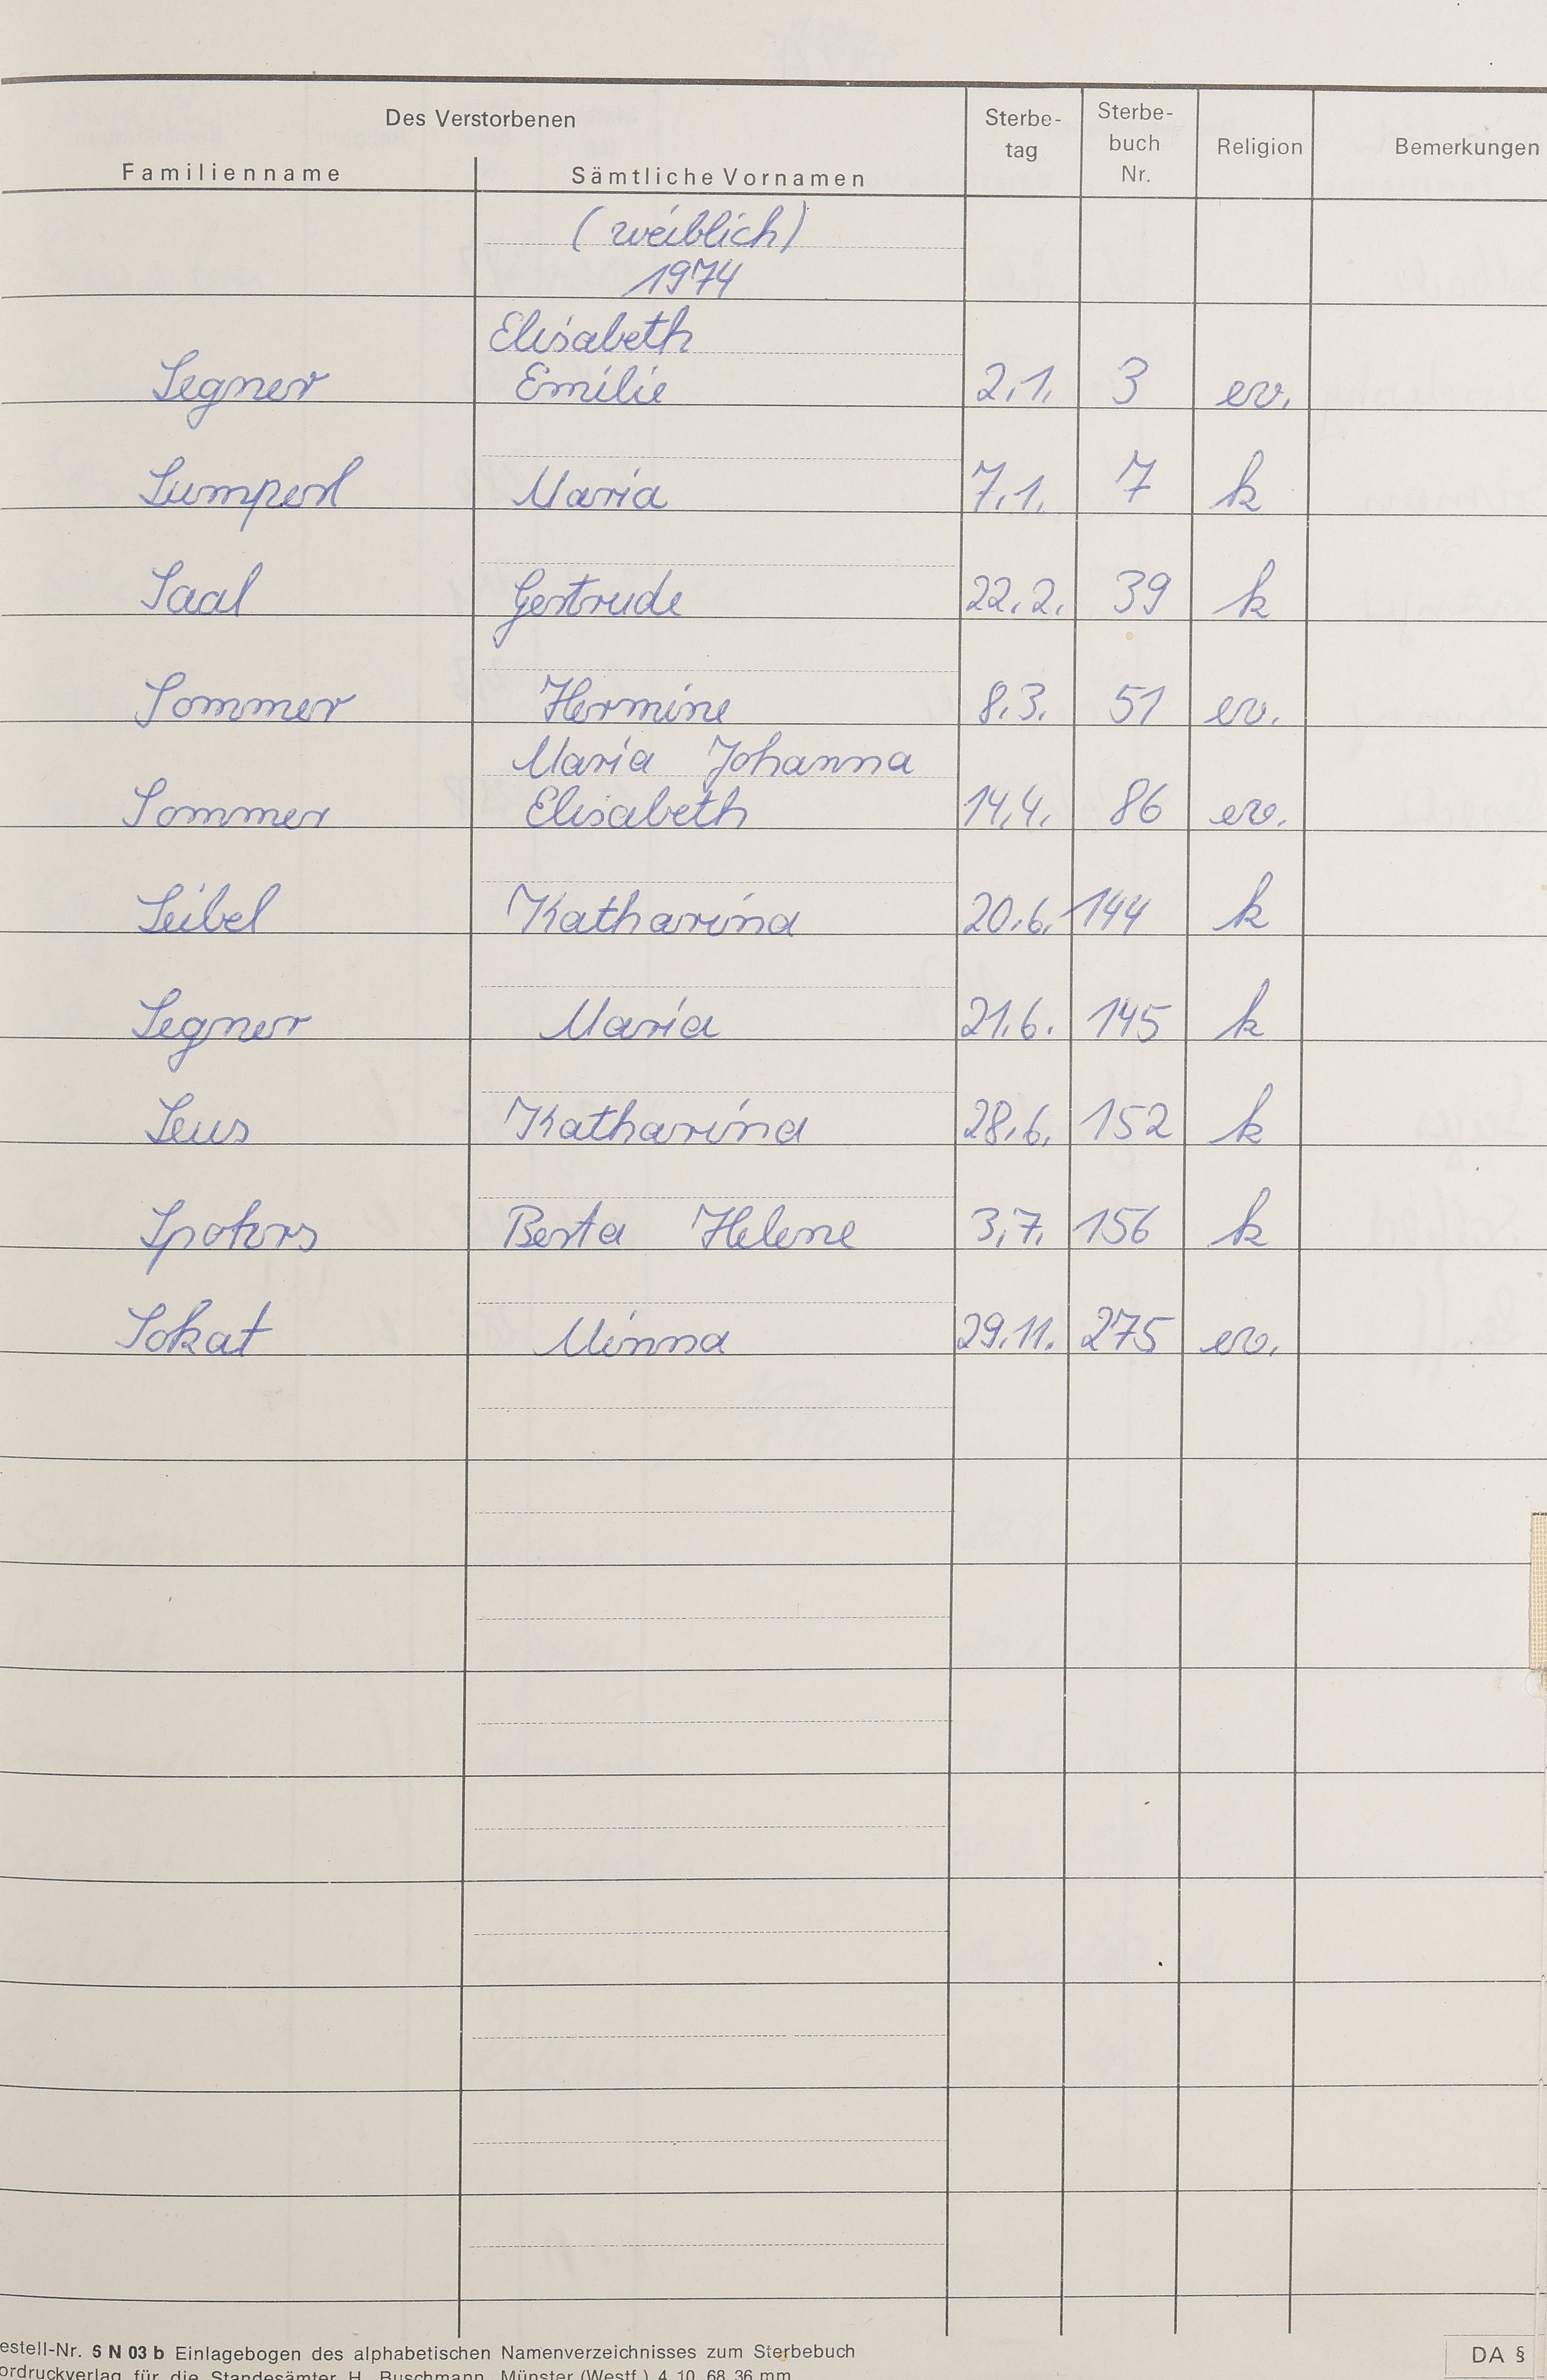 Des Verstorbenen
Familienname Sämtliche Vornamen Sterbe-tag Sterbe-buch Nr. Religion Bemerkungen
(weiblich)
1974
Elisabeth
Segner Emilie 2.1. 3 ev.
Sumperl Maria 7.1. 7 k
Saal Gertrude 22.2. 39 k
Sommer Hermine 8.3. 51 ev.
Maria Johanna
Sommer Elisabeth 14.4. 86 ev.
Seibel Katharina 20.6. 144 k
Segner Maria 21.6. 145 k
Seus Katharina 28.6. 152 k
Berta Helene 3.7. 156 k
Sokat Minna 29.11. 275 ev.
estell-Nr. 5 N 03 b Einlagebogen des alphabetischen Namenverzeichnisses zum Sterbebuch
ordruckverlag für die Standesämter H. Buschmann, Münster (Westf.) 4 10 68 36 mm
DA §